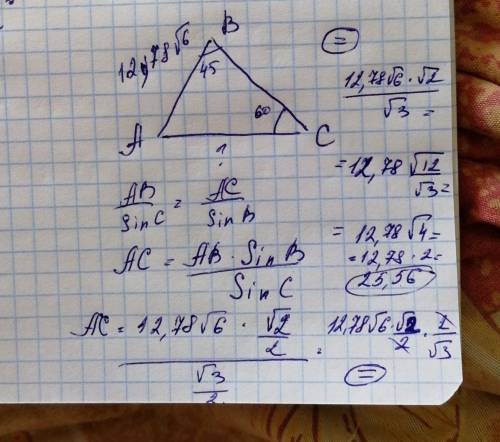 B
12,78√6
45
60
A
C
?
AB/SinC = AC/SinB
AC = AB · SinB / SinC
AC = 12,78√6 · √2/2 / √3/2 = 12,78√6·√2/2 · 2/√3
=
=
12,78√6 · √2 / √3 =
= 12,78 √12/√3 =
= 12,78√4 =
= 12,78 · 2 =
25,56